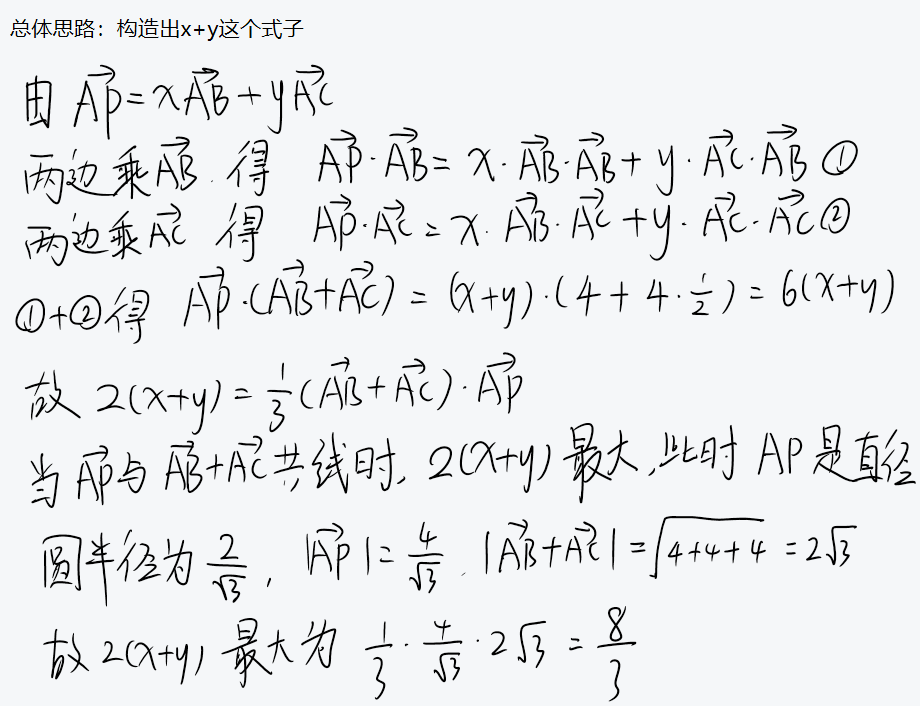 总体思路：构造出x+y这个式子
由 $\overrightarrow{AP}=x\overrightarrow{AB}+y\overrightarrow{AC}$
两边乘$\overrightarrow{AB}$. 得 $\overrightarrow{AP}\cdot\overrightarrow{AB}=x\cdot\overrightarrow{AB}\cdot\overrightarrow{AB}+y\cdot\overrightarrow{AC}\cdot\overrightarrow{AB}$ ①
两边乘$\overrightarrow{AC}$ 得 $\overrightarrow{AP}\cdot\overrightarrow{AC}=x\cdot\overrightarrow{AB}\cdot\overrightarrow{AC}+y\cdot\overrightarrow{AC}\cdot\overrightarrow{AC}$ ②
①+②得 $\overrightarrow{AP}\cdot(\overrightarrow{AB}+\overrightarrow{AC})=(x+y)\cdot(4+4\cdot\frac{1}{2})=6(x+y)$
故 $2(x+y)=\frac{1}{3}(\overrightarrow{AB}+\overrightarrow{AC})\cdot\overrightarrow{AP}$
当$\overrightarrow{AP}$与$\overrightarrow{AB}+\overrightarrow{AC}$共线时, $2(x+y)$最大, 此时 AP 是直径
圆半径为$\frac{2}{\sqrt{3}}$, $|\overrightarrow{AP}|=\frac{4}{\sqrt{3}}$. $|\overrightarrow{AB}+\overrightarrow{AC}|=\sqrt{4+4+4}=2\sqrt{3}$
故 $2(x+y)$ 最大为 $\frac{1}{3}\cdot\frac{4}{\sqrt{3}}\cdot2\sqrt{3}=\frac{8}{3}$